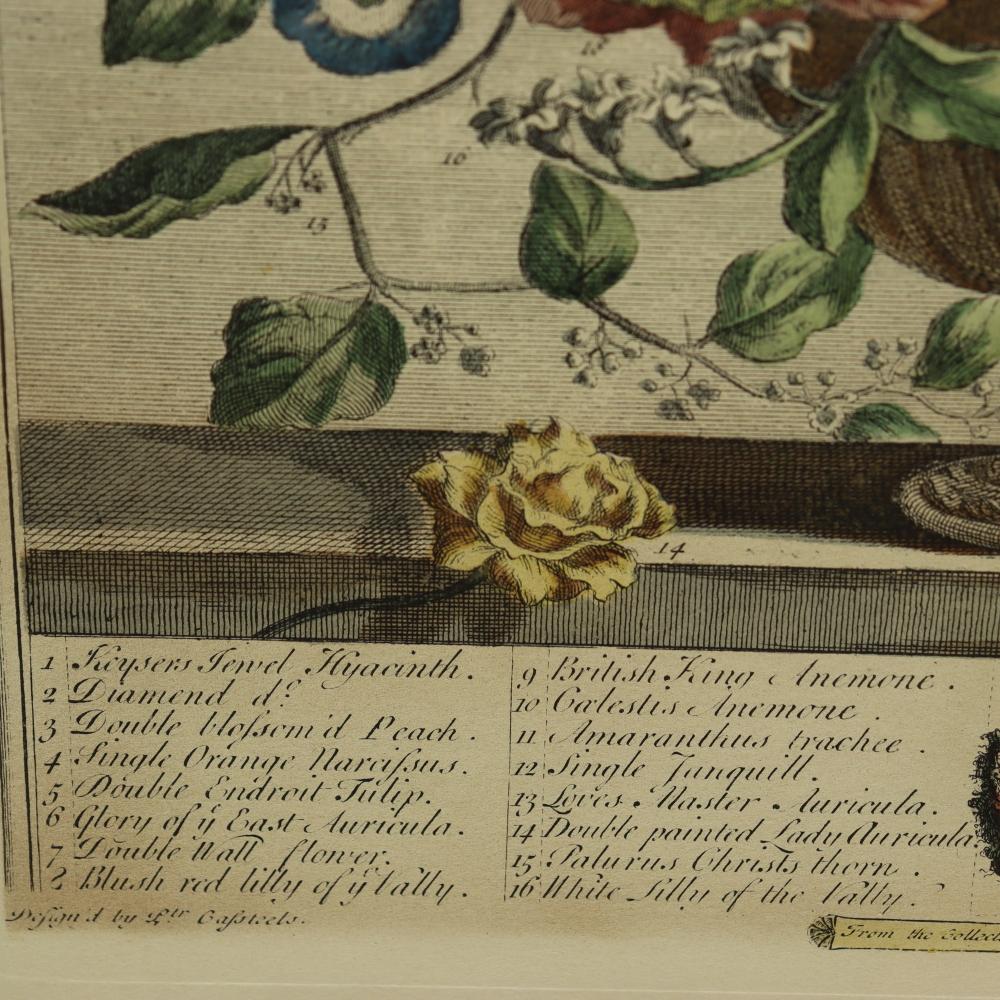 10
16
15
14
1 Keysers Jewel Hyacinth.
2 Diamend do
3 Double bloſsom'd Peach.
4 Single Orange Narciſsus.
5 Double Endroit Tulip.
6 Glory of ye East Auricula.
7 Double Wall flower.
8 Blush red lilly of ye Vally.
9 British King Anemone.
10 Cælestis Anemone.
11 Amaranthus trachee.
12 Single Junquill.
13 Loves Master Auricula.
14 Double painted Lady Auricula.
15 Palurus Christs thorn.
16 White Lilly of the Vally.
Design'd by Ptr Caſsteels.
From the Collect